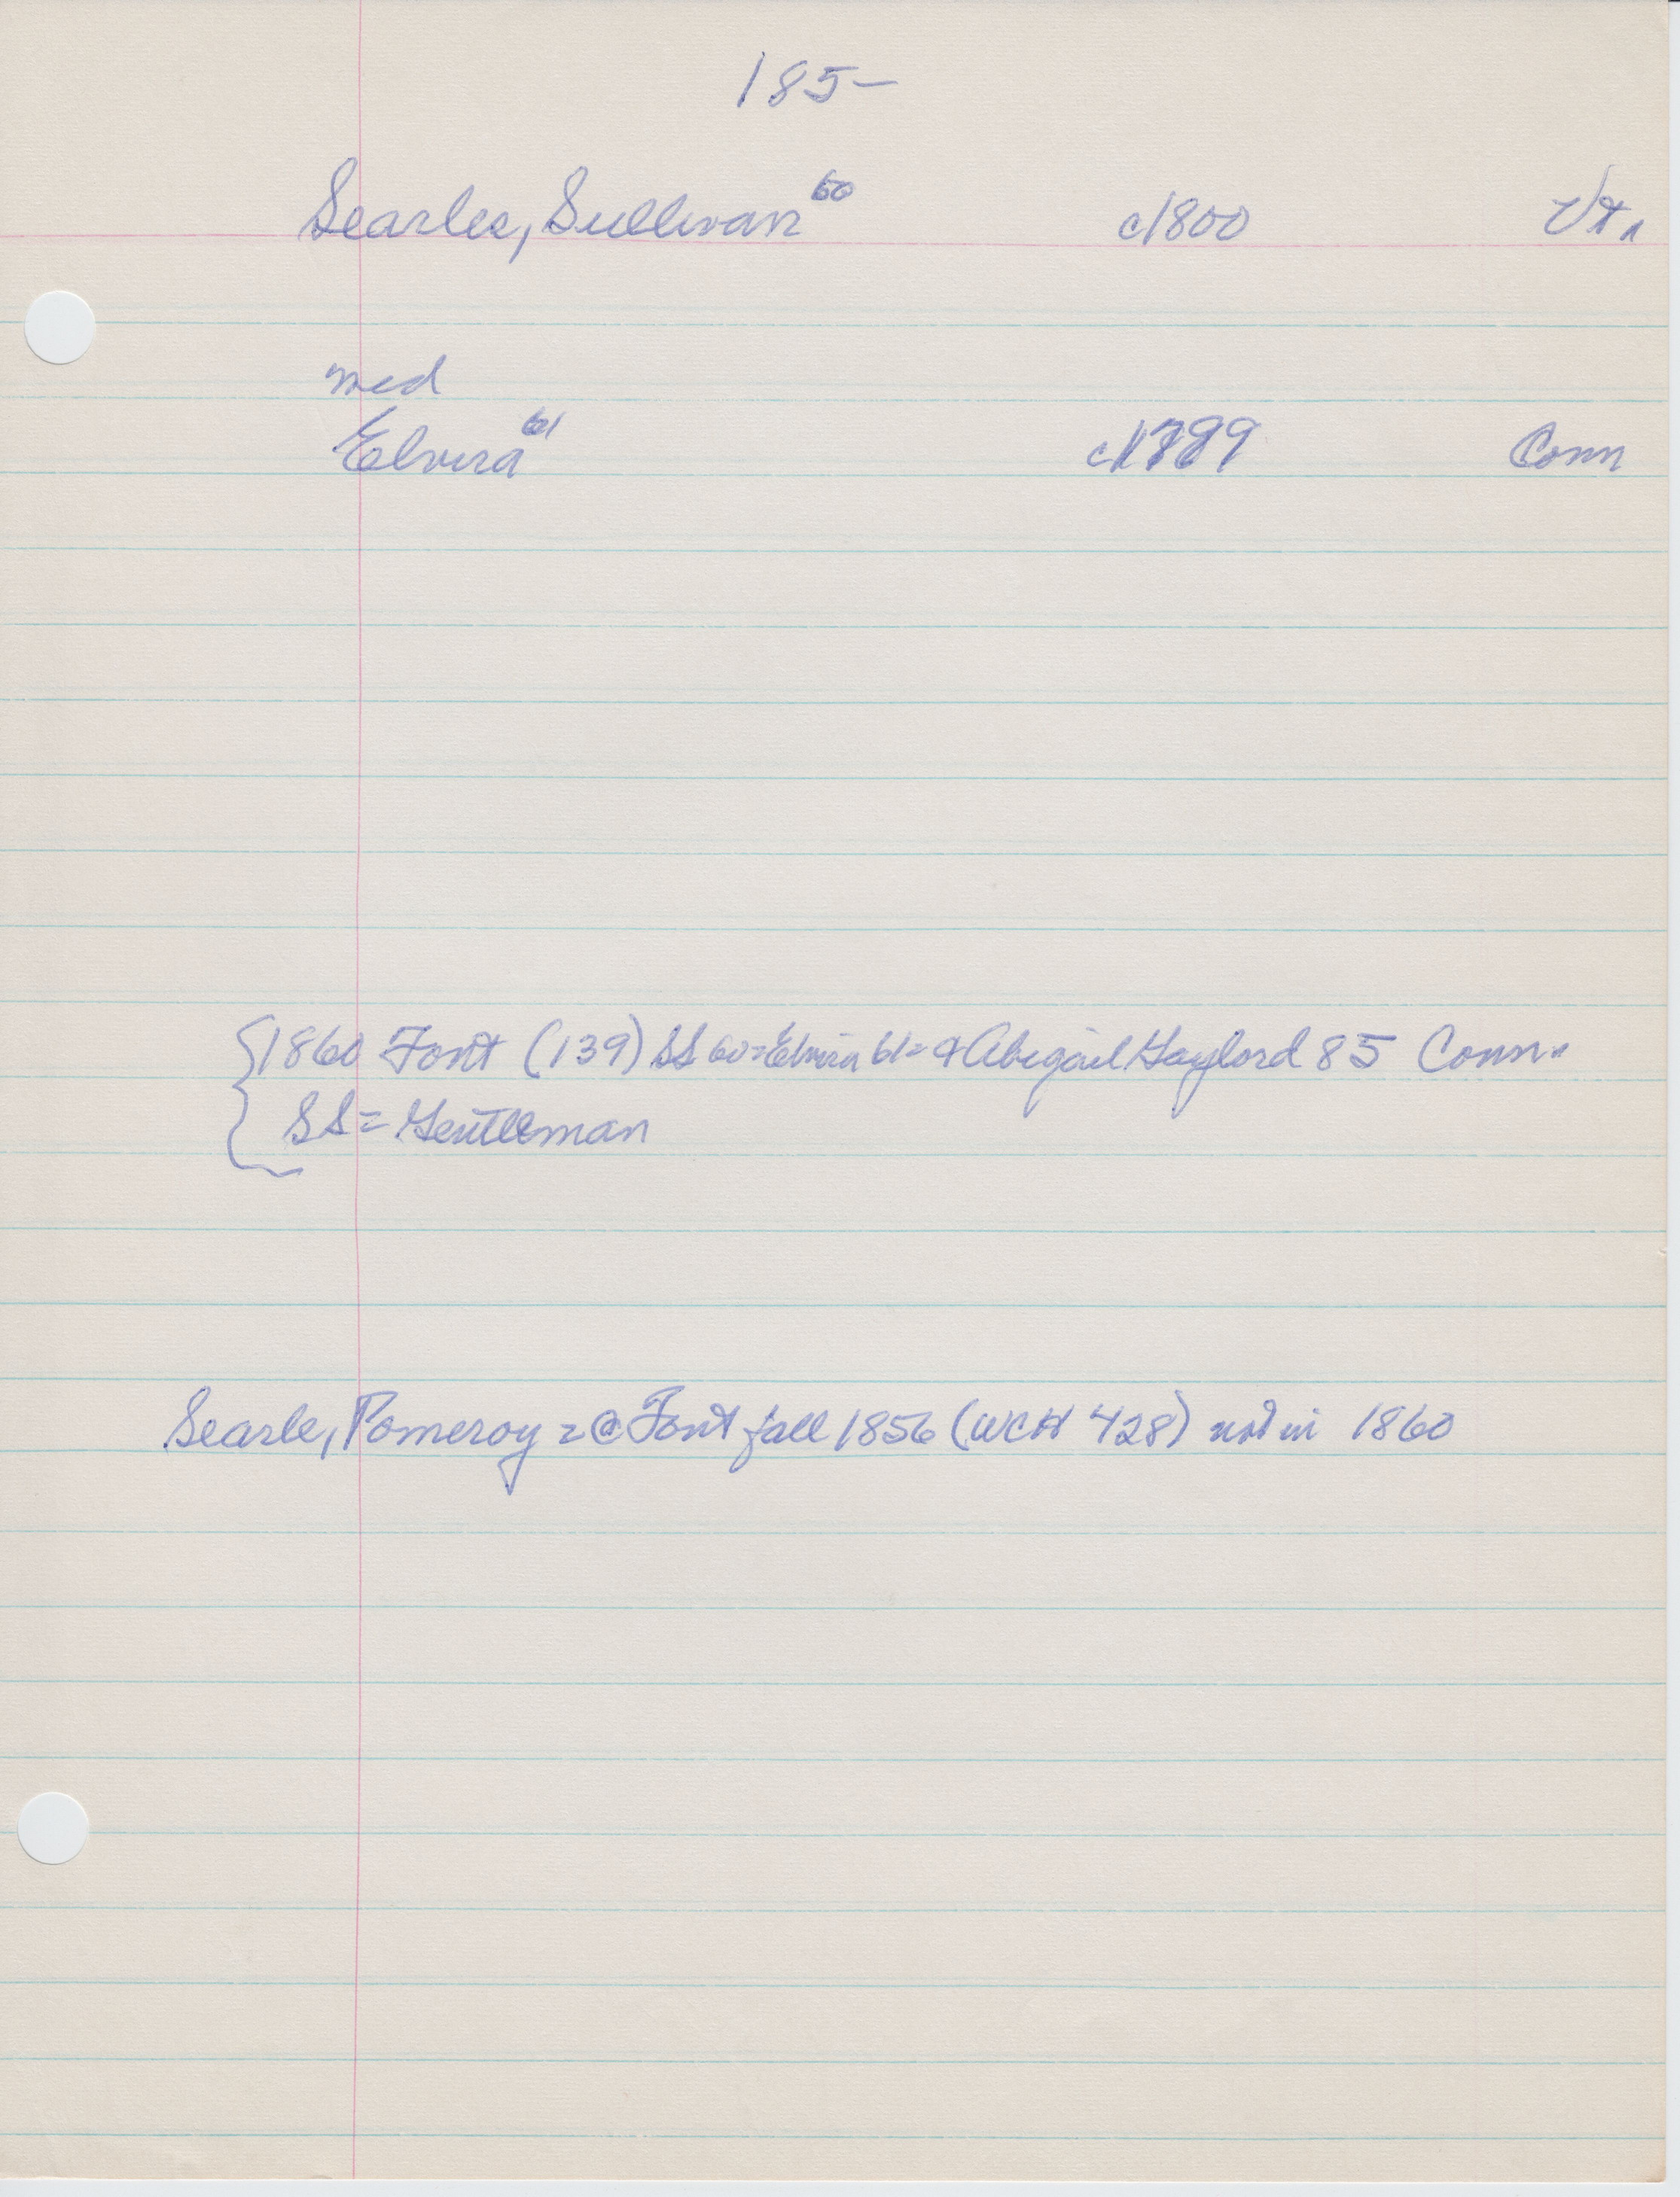 185-
Searles, Sullivan 60 c1800 Vt.
med
Elvira 61 c1799 Conn
{1860 Font (139) SS 60=Elvira 61= & Abigail Gaylord 85 Conn.
SS= Gentleman
Searle, Pomeroy = @ Font fall 1856 (WCH 428) not in 1860